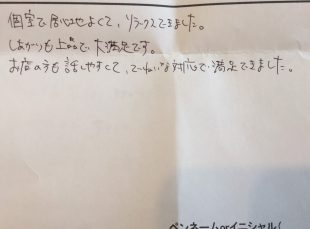 個室で居心地よくて、リラックスできました。
しあがりも上品で大満足です。
お店の方も話しやすくて、ていねいな対応で満足できました。
ペンネームorイニシャル(